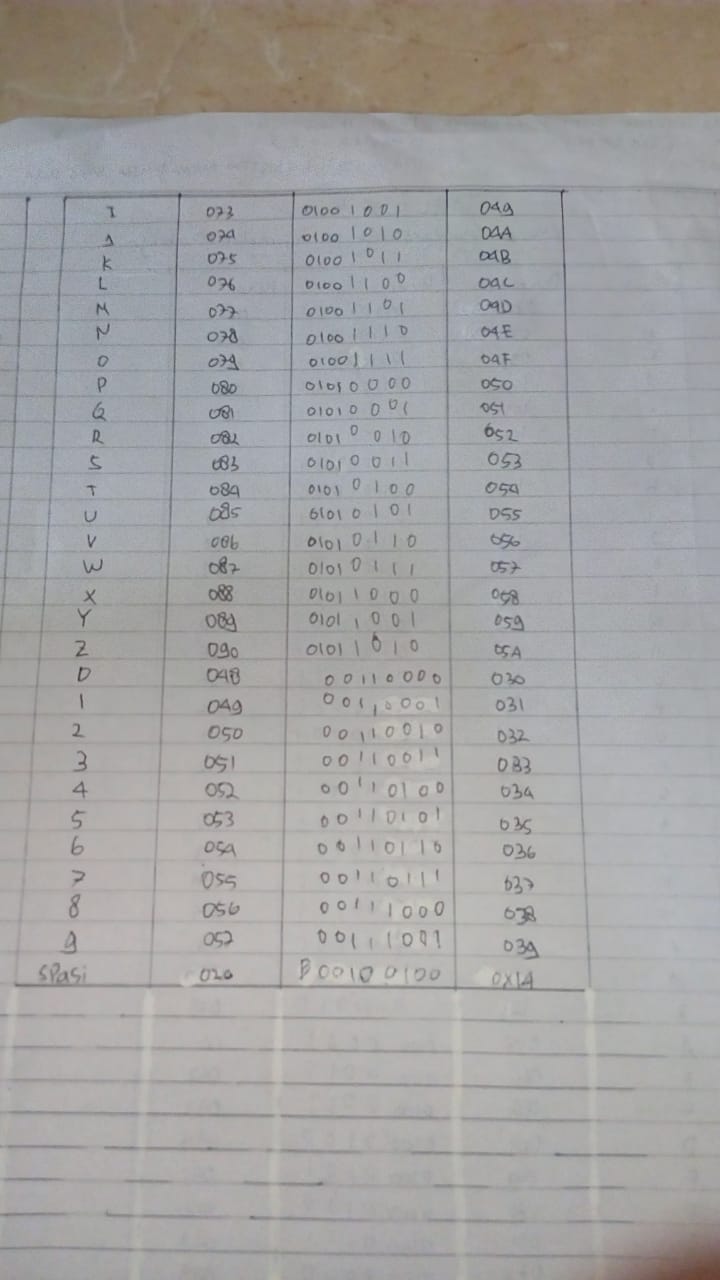 I 073 01001001 049
J 074 01001010 04A
K 075 01001011 04B
L 076 01001100 04C
M 077 01001101 04D
N 078 01001110 04E
O 079 01001111 04F
P 080 01010000 050
Q 081 01010001 051
R 082 01010010 052
S 083 01010011 053
T 084 01010100 054
U 085 01010101 055
V 086 01010110 056
W 087 01010111 057
X 088 01011000 058
Y 089 01011001 059
Z 090 01011010 05A
0 048 00110000 030
1 049 00110001 031
2 050 00110010 032
3 051 00110011 033
4 052 00110100 034
5 053 00110101 035
6 054 00110110 036
7 055 00110111 037
8 056 00111000 038
9 057 00111001 039
SPasi 020 B00100100 0X14